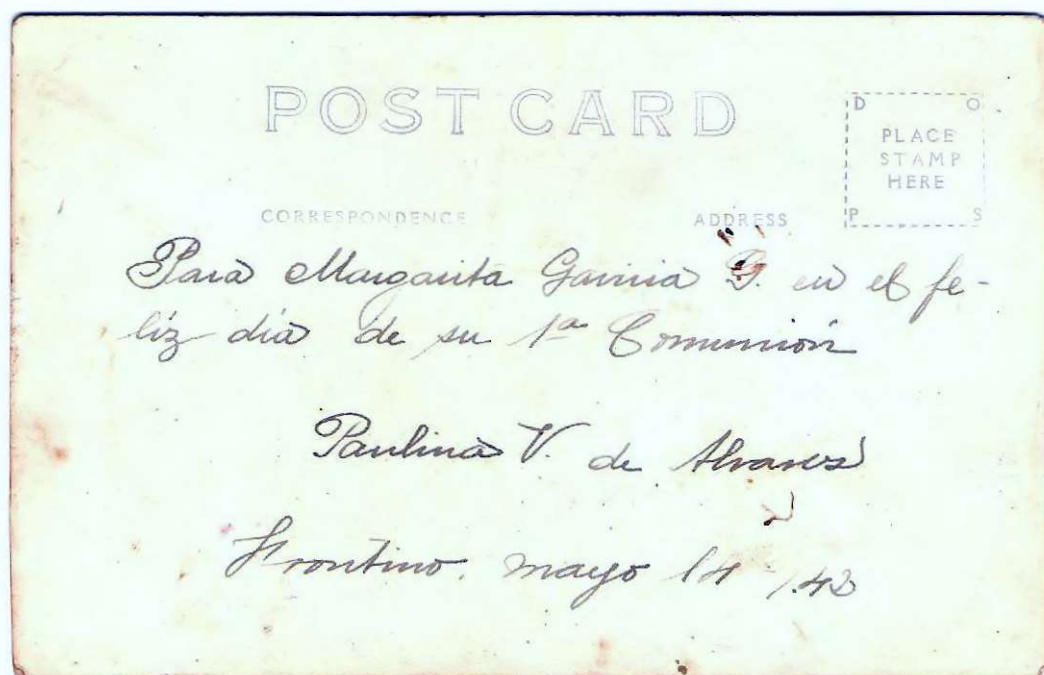 POST CARD
D O
PLACE
STAMP
HERE
P S
CORRESPONDENCE ADDRESS
Para Margarita Garcia G. en el fe-
liz dia de su 1ª Comunión
Paulina V. de Alvares
Frontino. mayo 14 /43